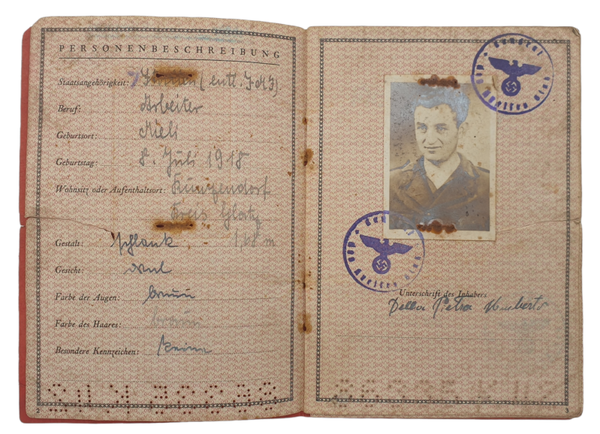 PERSONENBESCHREIBUNG
Staatsangehörigkeit: (entl. IMI)
Beruf: Arbeiter
Geburtsort: Meli
Geburtstag: 8. Juli 1918
Wohnsitz oder Aufenthaltsort: Kunzendorf
Kreis Glatz
Gestalt: schlank 1,68 m
Gesicht: oval
Farbe der Augen: braun
Farbe des Haares: braun
Besondere Kennzeichen: keine
Unterschrift des Inhabers
Della Pietra Umberto